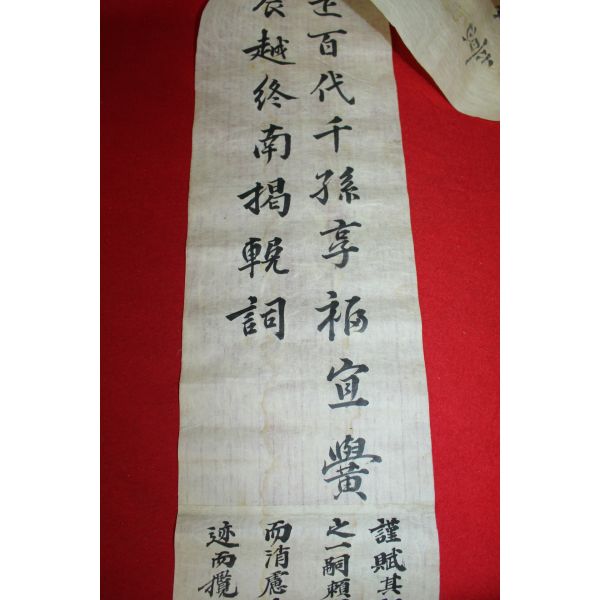 百代千孫享福宜黌
越終南揭輓詞
謹賦其
之一嗣頼
而消慮
迹而攬